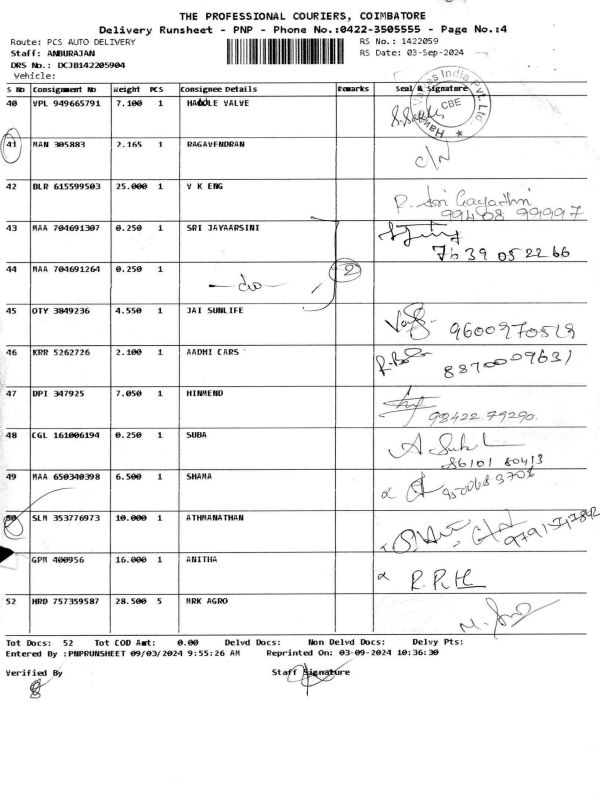 THE PROFESSIONAL COURIERS, COIMBATORE
Delivery Runsheet - PNP - Phone No.:0422-3505555 - Page No.:4
Route: PCS AUTO DELIVERY RS No.: 1422059
Staff: ANBURAJAN RS Date: 03-Sep-2024
DRS No.: DCJB142205904
Vehicle:
S No Consignment No Weight PCS Consignee Details Remarks Seal & Signature
40 VPL 949665791 7.100 1 VALVE
India Pvt. Ltd.
CBE
41 MAN 305883 2.165 1 RAGAVENDRAN C/N
42 BLR 615599503 25.000 1 V K ENG
99408 99997
43 MAA 704691307 0.250 1 SRI JAYAARSINI
7639052266
44 MAA 704691264 0.250 1 2
45 OTY 3849236 4.550 1 JAI SUNLIFE
46 KRR 5262726 2.100 1 AADHI CARS
8870009631
47 DPI 347925 7.050 1 HINMEND
98422 79290
48 CGL 161006194 0.250 1 SUBA
86101 80413
49 MAA 650340398 6.500 1 SHAMA
50 SLM 353776973 10.000 1 ATHMANATHAN
GPM 400956 16.000 1 ANITHA
52 HRD 757359587 28.500 5 MRK AGRO
Tot Docs: 52 Tot COD Amt: 0.00 Delvd Docs: Non Delvd Docs: Delvy Pts:
Entered By :PNPRUNSHEET 09/03/2024 9:55:26 AM Reprinted On: 03-09-2024 10:36:30
Verified By Staff Signature